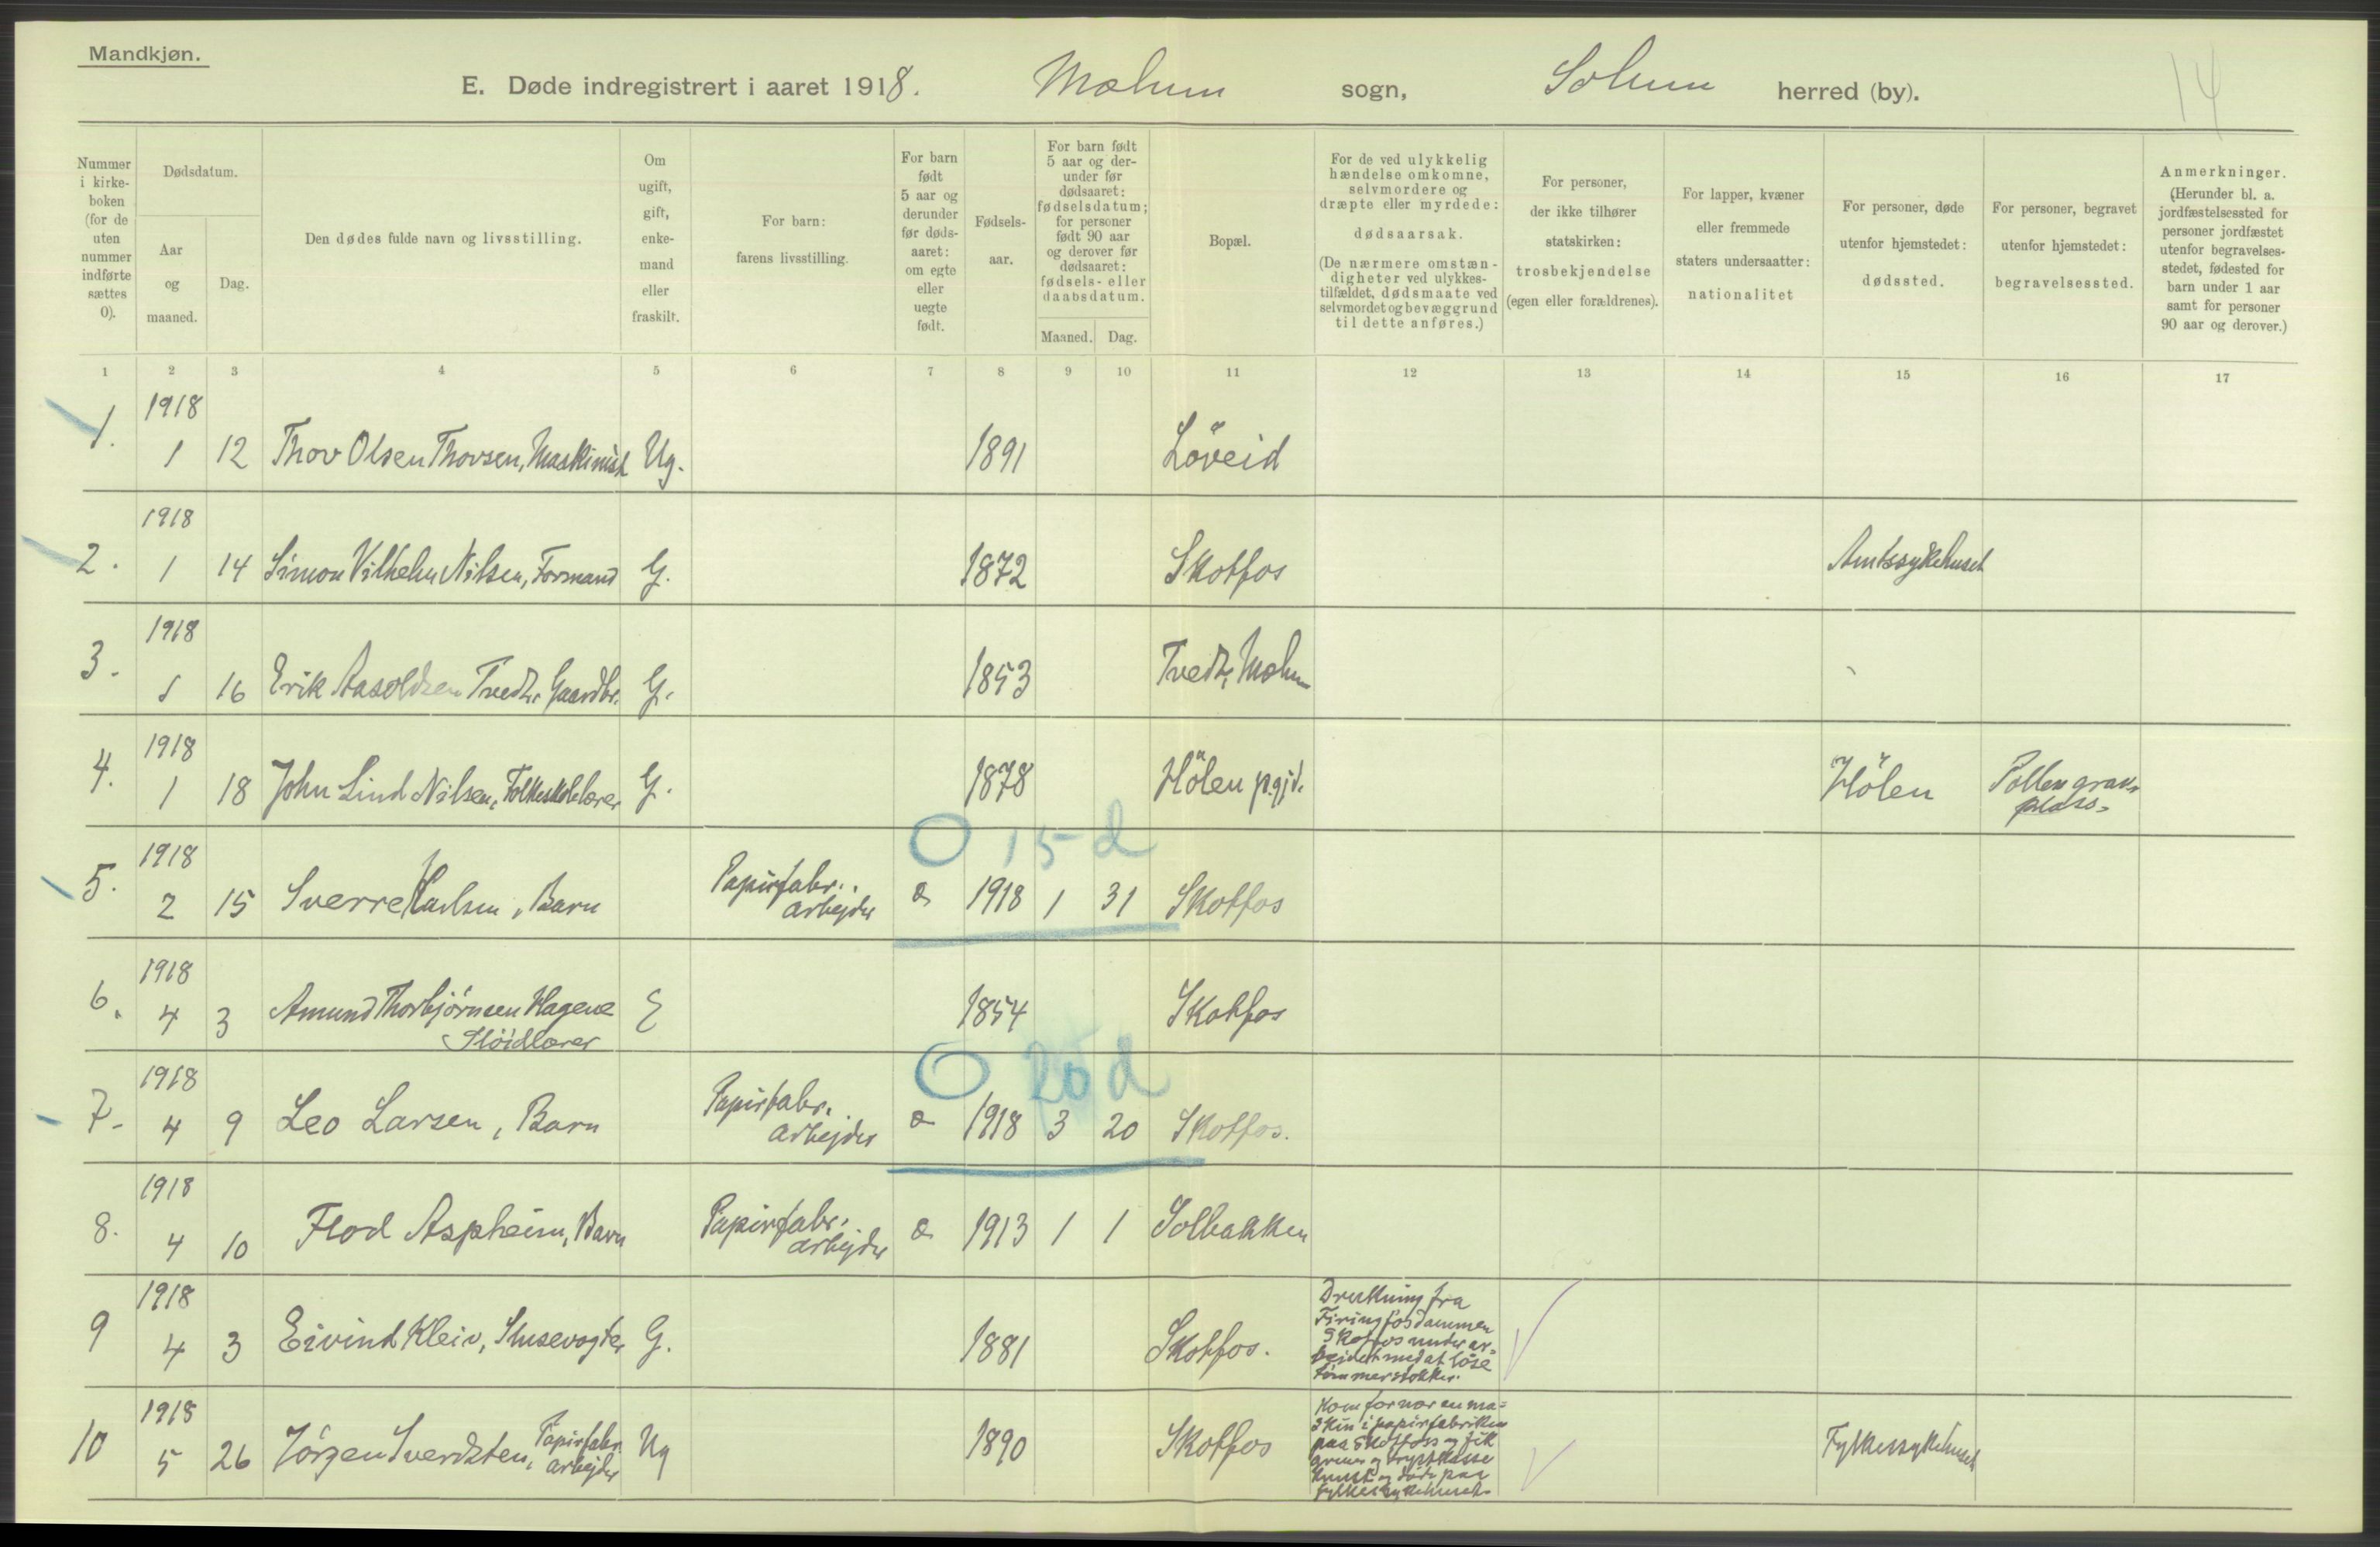 Mandkjøn.
E. Døde indregistrert i aaret 1918. Mælum sogn, Solum herred (by).
14
Nummer i kirke-boken (for de uten nummer indførte sættes 0).
Dødsdatum.
Aar og maaned.
Dag.
Den dødes fulde navn og livsstilling.
Om ugift, gift, enke-mand eller fraskilt.
For barn: farens livsstilling.
For barn født 5 aar og derunder før døds-aaret: om egte eller uegte født.
Fødsels-aar.
For barn født 5 aar og der-under før dødsaaret: fødselsdatum; for personer født 90 aar og derover før dødsaaret: fødsels- eller daabsdatum.
Maaned. Dag.
Bopæl.
For de ved ulykkelig hændelse omkomne, selvmordere og dræpte eller myrdede: dødsaarsak.
(De nærmere omstæn-digheter ved ulykkes-tilfældet, dødsmaate ved selvmordet og bevæggrund til dette anføres.)
For personer, der ikke tilhører statskirken: trosbekjendelse (egen eller forældrenes).
For lapper, kvæner eller fremmede staters undersaatter: nationalitet
For personer, døde utenfor hjemstedet: dødssted.
For personer, begravet utenfor hjemstedet: begravelsessted.
Anmerkninger.
(Herunder bl. a. jordfæstelsessted for personer jordfæstet utenfor begravelses-stedet, fødested for barn under 1 aar samt for personer 90 aar og derover.)
1 2 3 4 5 6 7 8 9 10 11 12 13 14 15 16 17
1918
1. 1 12 Thov Olsen Thovsen, Maskinist Ug. 1891 Löveid
1918
2. 1 14 Simon Vilhelm Nilsen, Formand G. 1872 Skotfos Amtssykehuset
1918
3. 1 16 Erik Aasoldsen Tvedt, Gaardbr. G. 1853 Tvedt, Mælum
1918
4. 1 18 John Lind Nilsen, Folkeskolelærer G. 1878 Hölen prgjd. Hölen Pollen grav-
plass.
O 15 d
1918
5. 2 15 Sverre Carlsen, Barn Papirfabr.. 1918 1 31 Skotfos
arbejder
1918
6. 4 3 Amund Thorbjørnsen Hagene E 1854 Skotfos
Slöidlærer
O 20 d
1918
7. 4 9 Leo Larsen, Barn Papirfabr. 1918 3 20 Skotfos.
arbejder
1918
8. 4 10 Flod Aspheim, Barn Papirfabr. 1913 1 1 Solbakken
arbejder
1918
9 4 3 Eivind Kleiv, Slusevogter G. 1881 Skotfos.
Drukning fra
Firingfosdammen
Skotfos under ar-
beidet med at löse
tömmerstokker.
1918
10 5 26 Jörgen Sverdsten, Papirfabr. Ug 1890 Skotfos Fylkessykehuset
arbejder
Kom for nær en ma-
skin i papirfabriken
paa Skotfoss og fik
armen og brystkasse
knust og døde paa
fylkessykehuset.